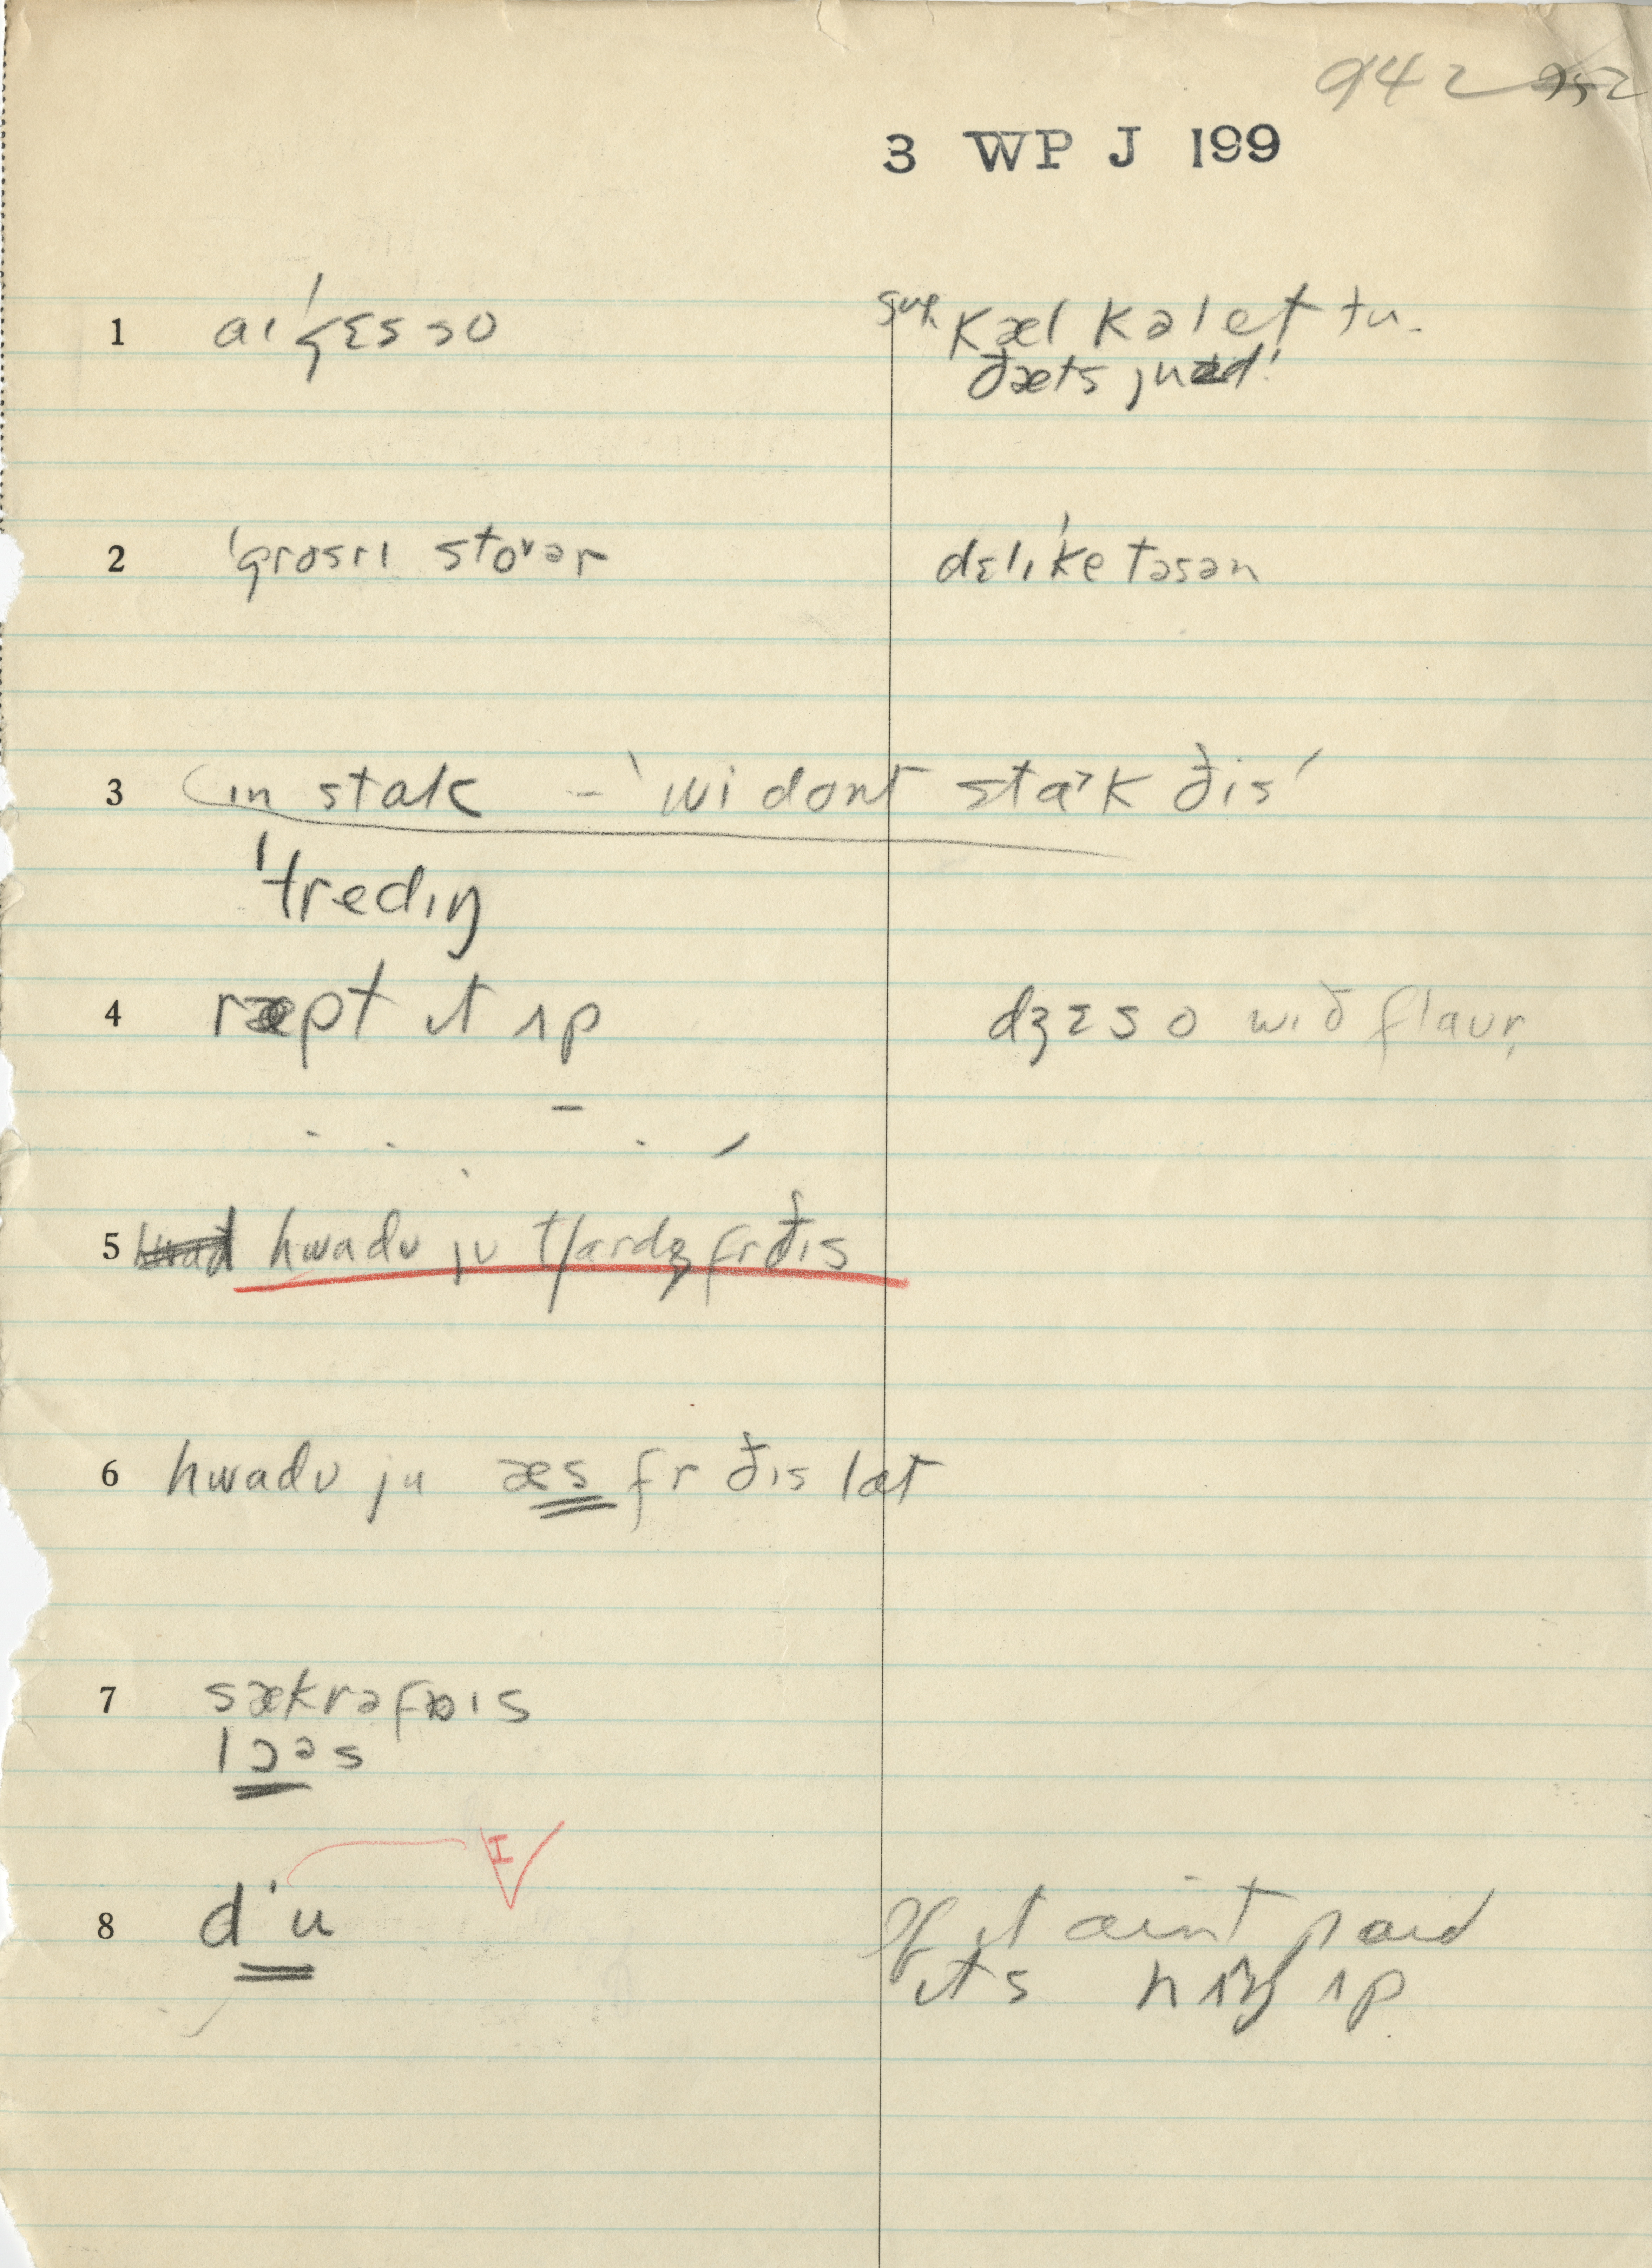 942 952
3 WP J 199
1 aɪ ˈgɛs so
kæl kəlet tu.
ðæts juzd'
2 ˈgrosrɪ stoᵛər
dɛlɪˈketəsən
3 (ɪn stɑk – 'wi dont stɑ˃k ðis'
ˈtredɪŋ
4 ræpt ɪt ʌp
dʒɛs o wið flaur,
5 hwadu ju tʃardʒ fr ðɪs
6 hwadu ju æs fr ðɪs lat
7 sækrəfaɪs
lɔᵊs
8 d'u
I
If it aint paid
ɪts hʌŋ ʌp